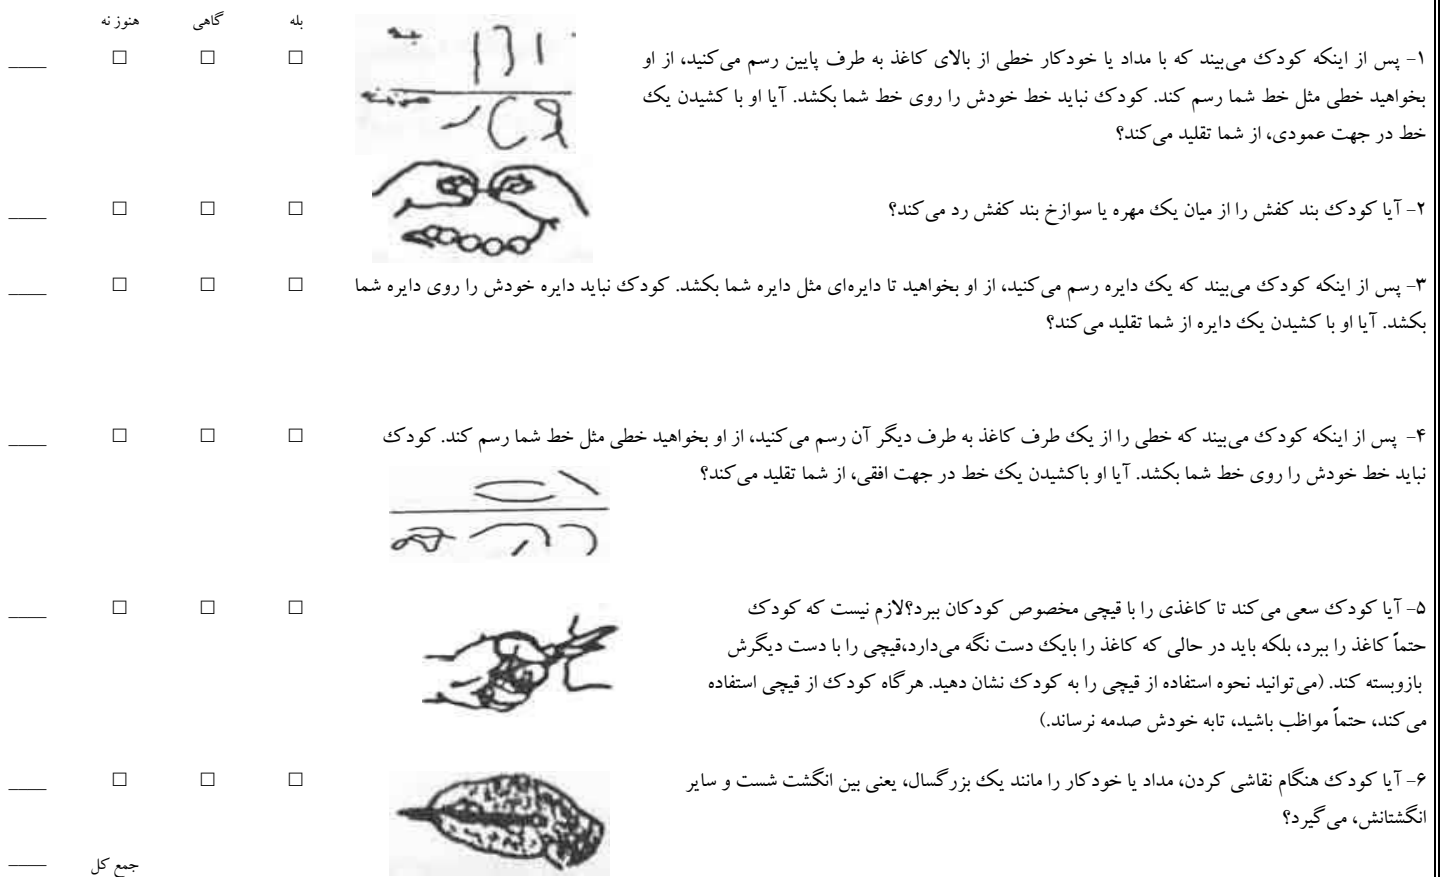 بله گاهی هنوز نه
۱- پس از اینکه کودک می‌بیند که با مداد یا خودکار خطی از بالای کاغذ به طرف پایین رسم می‌کنید، از او
بخواهید خطی مثل خط شما رسم کند. کودک نباید خط خودش را روی خط شما بکشد. آیا او با کشیدن یک
خط در جهت عمودی، از شما تقلید می‌کند؟
بله
۲- آیا کودک بند کفش را از میان یک مهره یا سوازخ بند کفش رد می‌کند؟
۳- پس از اینکه کودک می‌بیند که یک دایره رسم می‌کنید، از او بخواهید تا دایره‌ای مثل دایره شما بکشد. کودک نباید دایره خودش را روی دایره شما
بکشد. آیا او با کشیدن یک دایره از شما تقلید می‌کند؟
۴- پس از اینکه کودک می‌بیند که خطی را از یک طرف کاغذ به طرف دیگر آن رسم می‌کنید، از او بخواهید خطی مثل خط شما رسم کند. کودک
نباید خط خودش را روی خط شما بکشد. آیا او باکشیدن یک خط در جهت افقی، از شما تقلید می‌کند؟
۵- آیا کودک سعی می‌کند تا کاغذی را با قیچی مخصوص کودکان ببرد؟لازم نیست که کودک
حتماً کاغذ را ببرد، بلکه باید در حالی که کاغذ را بایک دست نگه می‌دارد،قیچی را با دست دیگرش
بازوبسته کند. (می‌توانید نحوه استفاده از قیچی را به کودک نشان دهید. هرگاه کودک از قیچی استفاده
می‌کند، حتماً مواظب باشید، تابه خودش صدمه نرساند.)
۶- آیا کودک هنگام نقاشی کردن، مداد یا خودکار را مانند یک بزرگسال، یعنی بین انگشت شست و سایر
انگشتانش، می‌گیرد؟
جمع کل